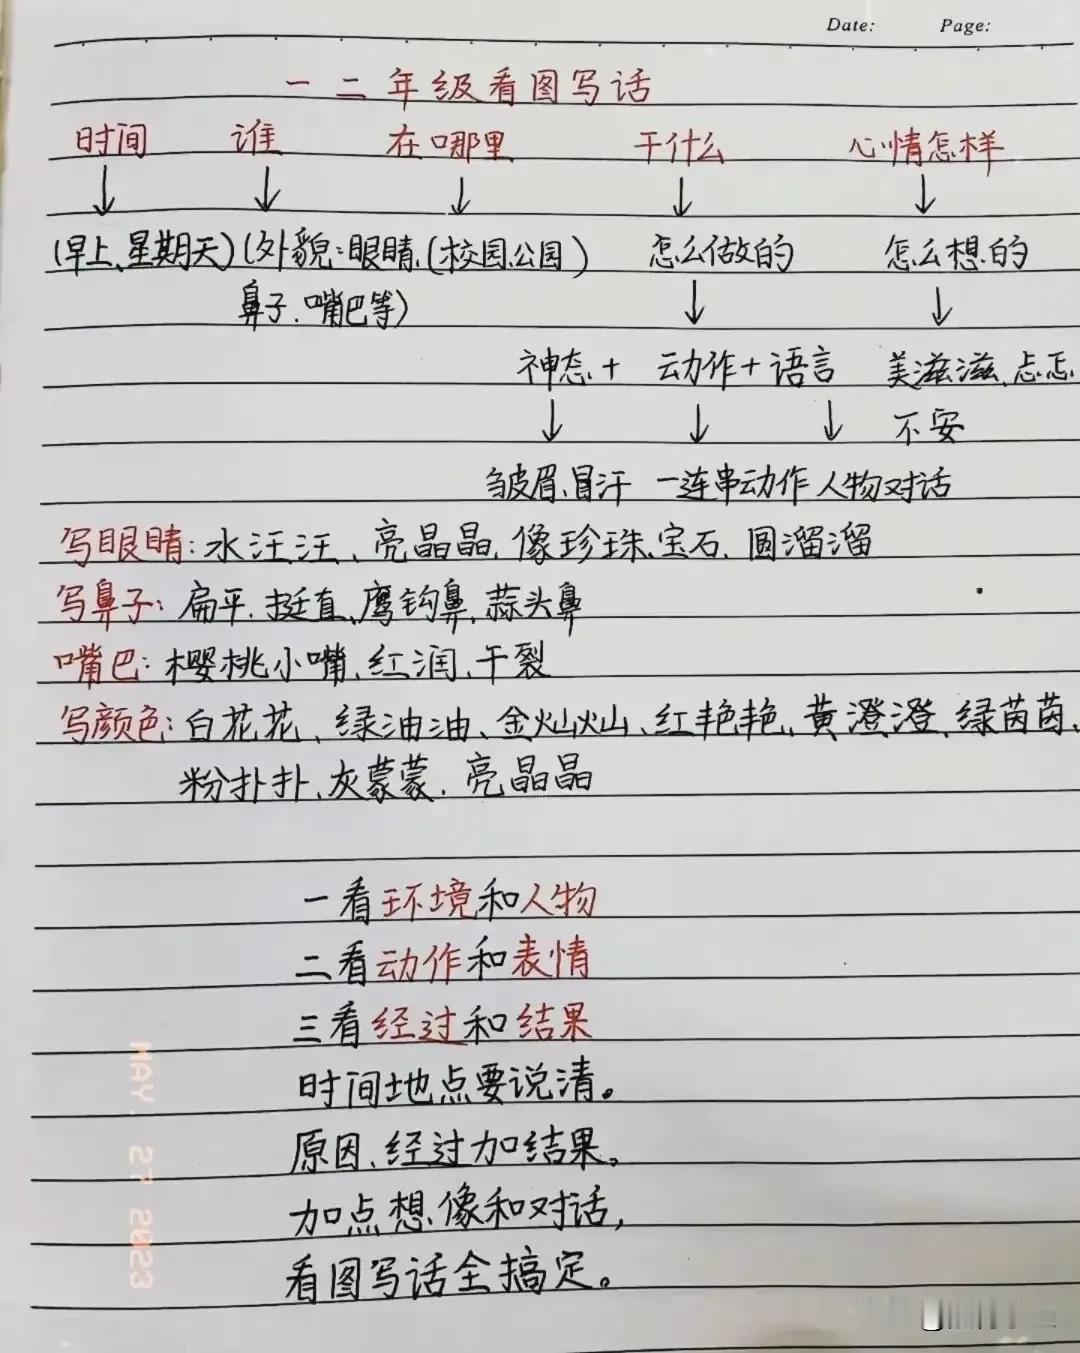 Date: Page:
一二年级看图写话
时间 谁 在哪里 干什么 心情怎样
↓ ↓ ↓ ↓ ↓
(早上、星期天)(外貌:眼睛、(校园、公园) 怎么做的 怎么想的
鼻子、嘴巴等) ↓ ↓
神态+ 动作+语言 美滋滋、忐忑
↓ ↓ ↓ 不安
皱眉、冒汗 一连串动作 人物对话
写眼睛:水汪汪、亮晶晶、像珍珠、宝石、圆溜溜
写鼻子:扁平、挺直、鹰钩鼻、蒜头鼻
嘴巴:樱桃小嘴、红润、干裂
写颜色:白花花、绿油油、金灿灿、红艳艳、黄澄澄、绿茵茵、
粉扑扑、灰蒙蒙、亮晶晶
一看环境和人物
二看动作和表情
三看经过和结果
时间地点要说清。
原因、经过加结果。
加点想像和对话,
看图写话全搞定。
MAY. 27 2023